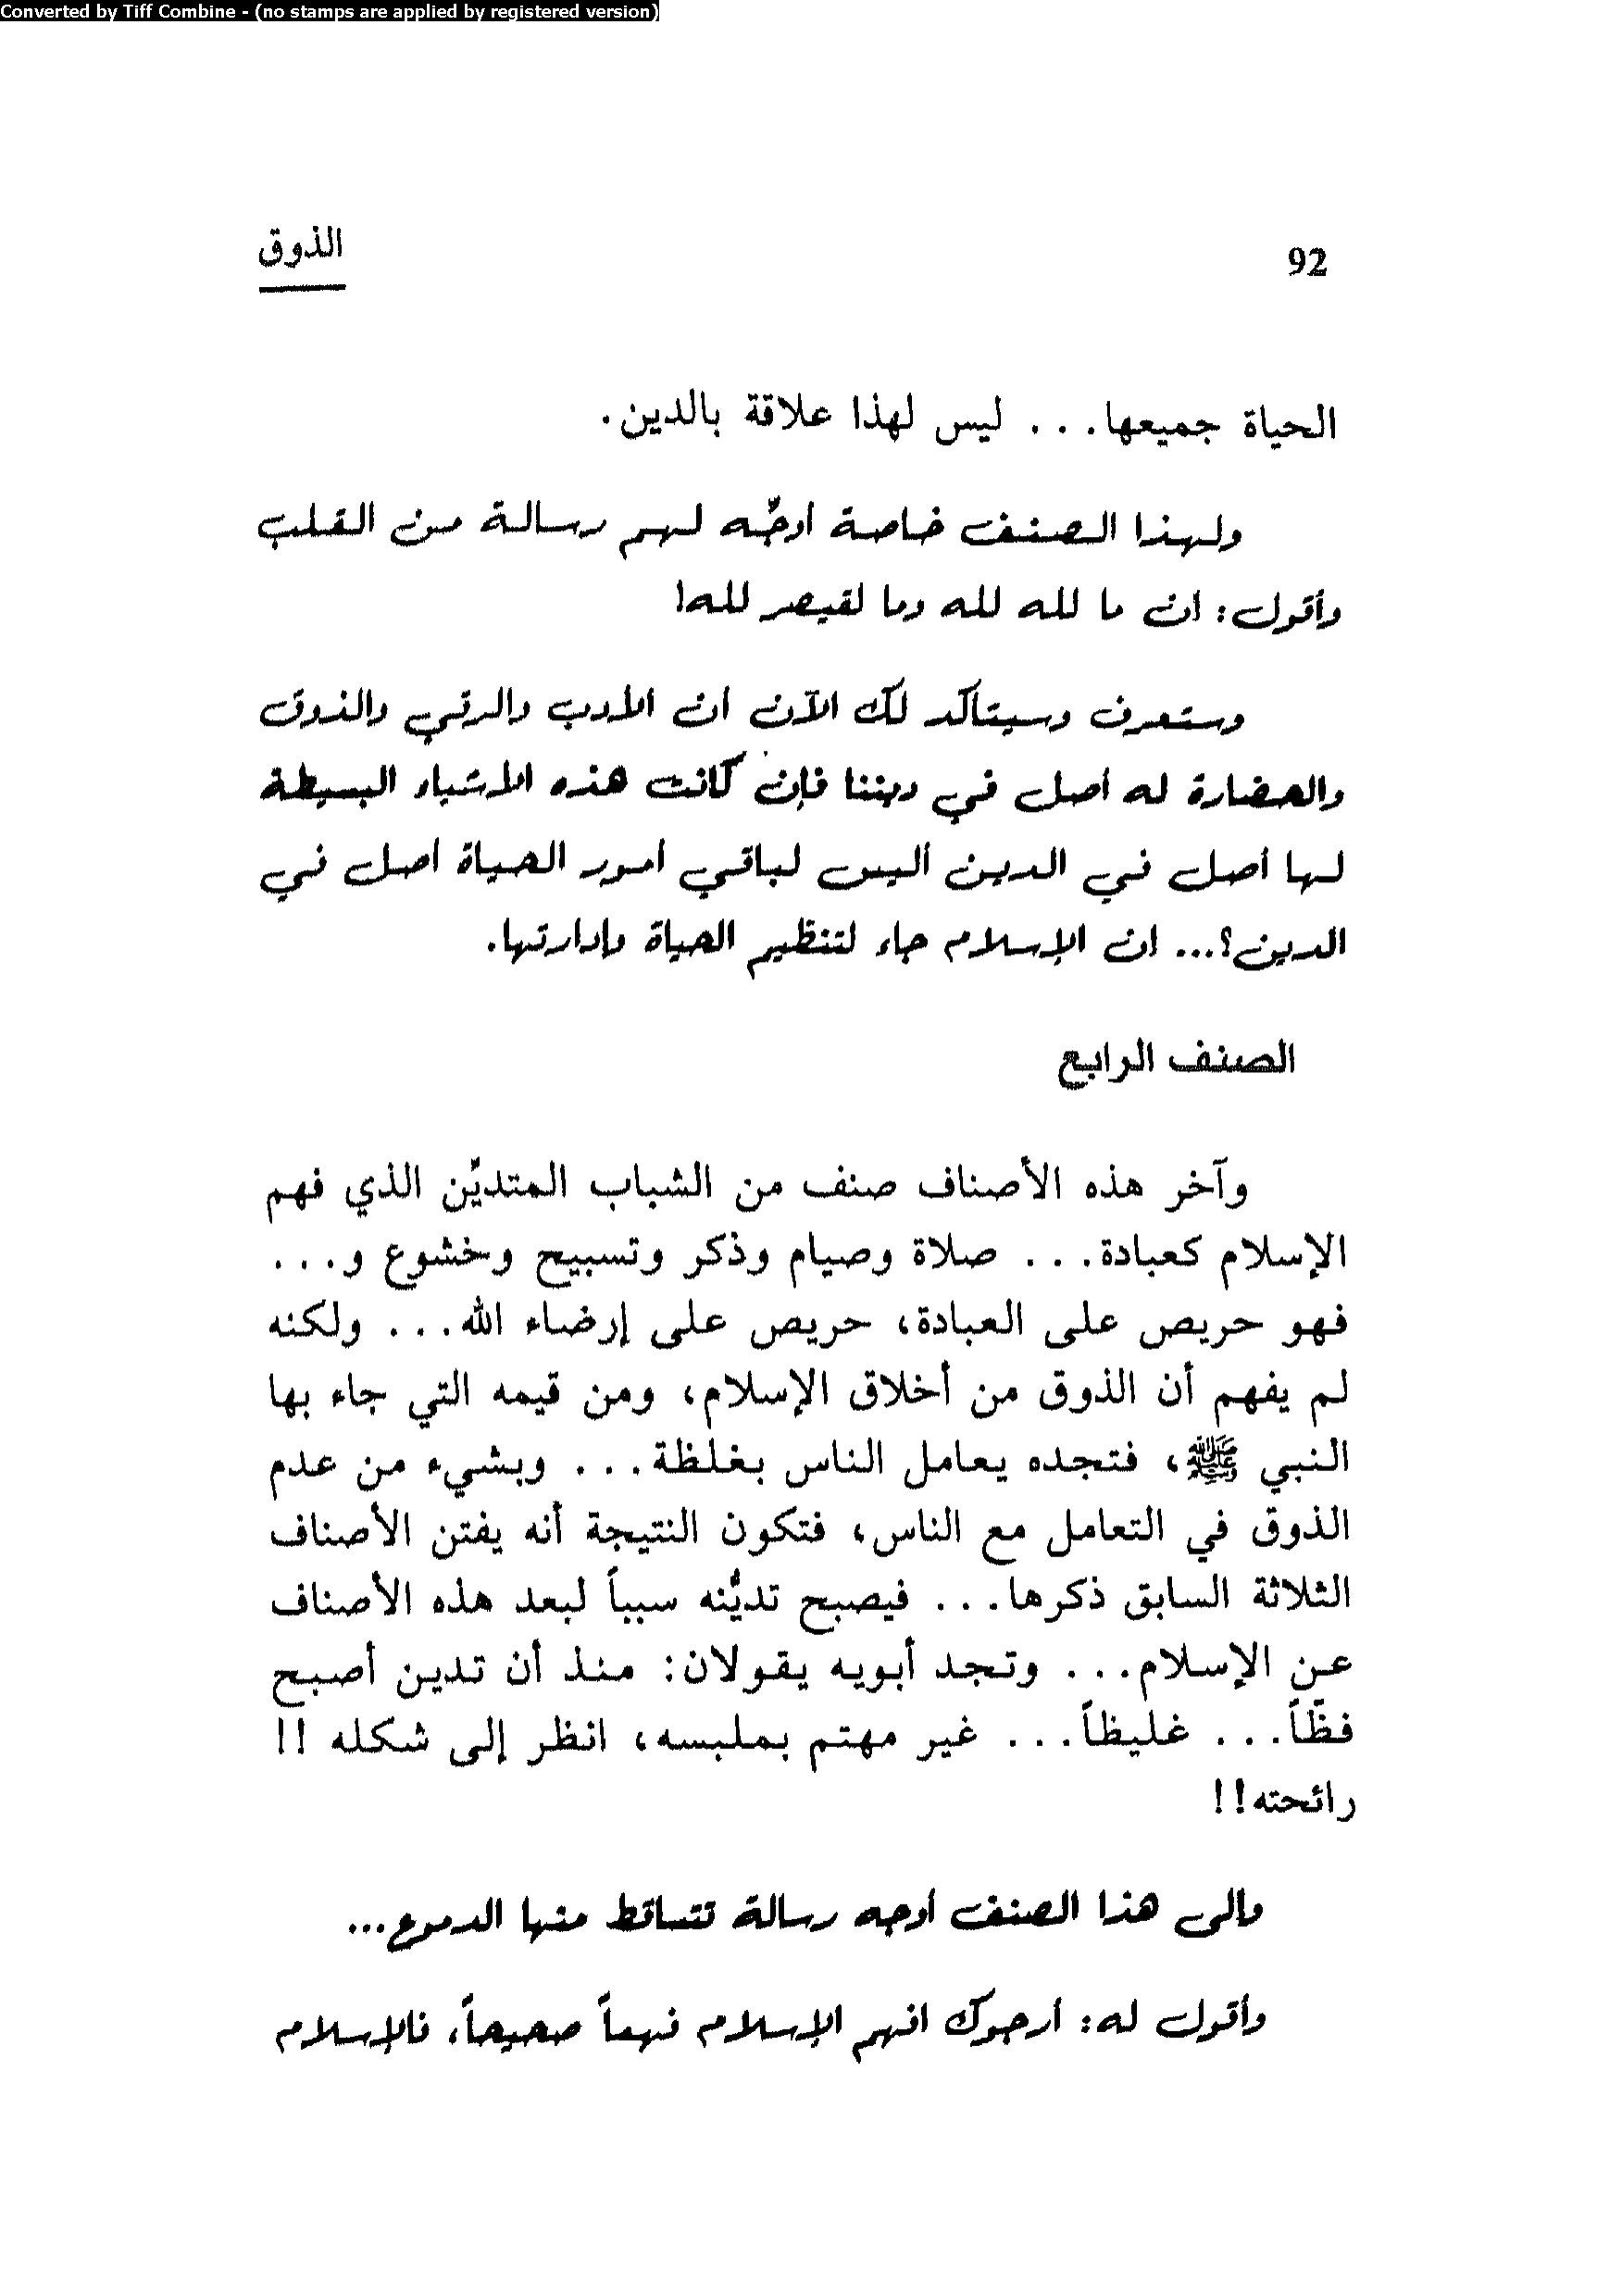 Converted by Tiff Combine - (no stamps are applied by registered version)
92
الذوق
الحياة جميعها... ليس لهذا علاقة بالدين.
ولهذا الصنف خاصة أوجّه لهم رسالة من القلب
وأقول: ان ما لله لله وما لقيصر لله!
وستعرف وسيتأكد لك الآن أن الأدب والرقي والذوق
والحضارة له أصل في ديننا فإن كانت هذه الأشياء البسيطة
لها أصل في الدين أليس لباقي أمور الحياة أصل في
الدين؟... ان الإسلام جاء لتنظيم الحياة وإدارتها.
الصنف الرابع
وآخر هذه الأصناف صنف من الشباب المتديِّن الذي فهم
الإسلام كعبادة... صلاة وصيام وذكر وتسبيح وخشوع و...
فهو حريص على العبادة، حريص على إرضاء الله... ولكنه
لم يفهم أن الذوق من أخلاق الإسلام، ومن قيمه التي جاء بها
النبي ﷺ، فتجده يعامل الناس بغلظة... وبشيء من عدم
الذوق في التعامل مع الناس، فتكون النتيجة أنه يفتن الأصناف
الثلاثة السابق ذكرها... فيصبح تديُّنه سبباً لبعد هذه الأصناف
عن الإسلام... وتجد أبويه يقولان: منذ أن تدين أصبح
فظّاً... غليظاً... غير مهتم بملبسه، انظر إلى شكله !!
رائحته!!
وإلى هذا الصنف أوجه رسالة تتساقط منها الدموع...
وأقول له: أرجوك افهم الإسلام فهماً صحيحاً، فالإسلام